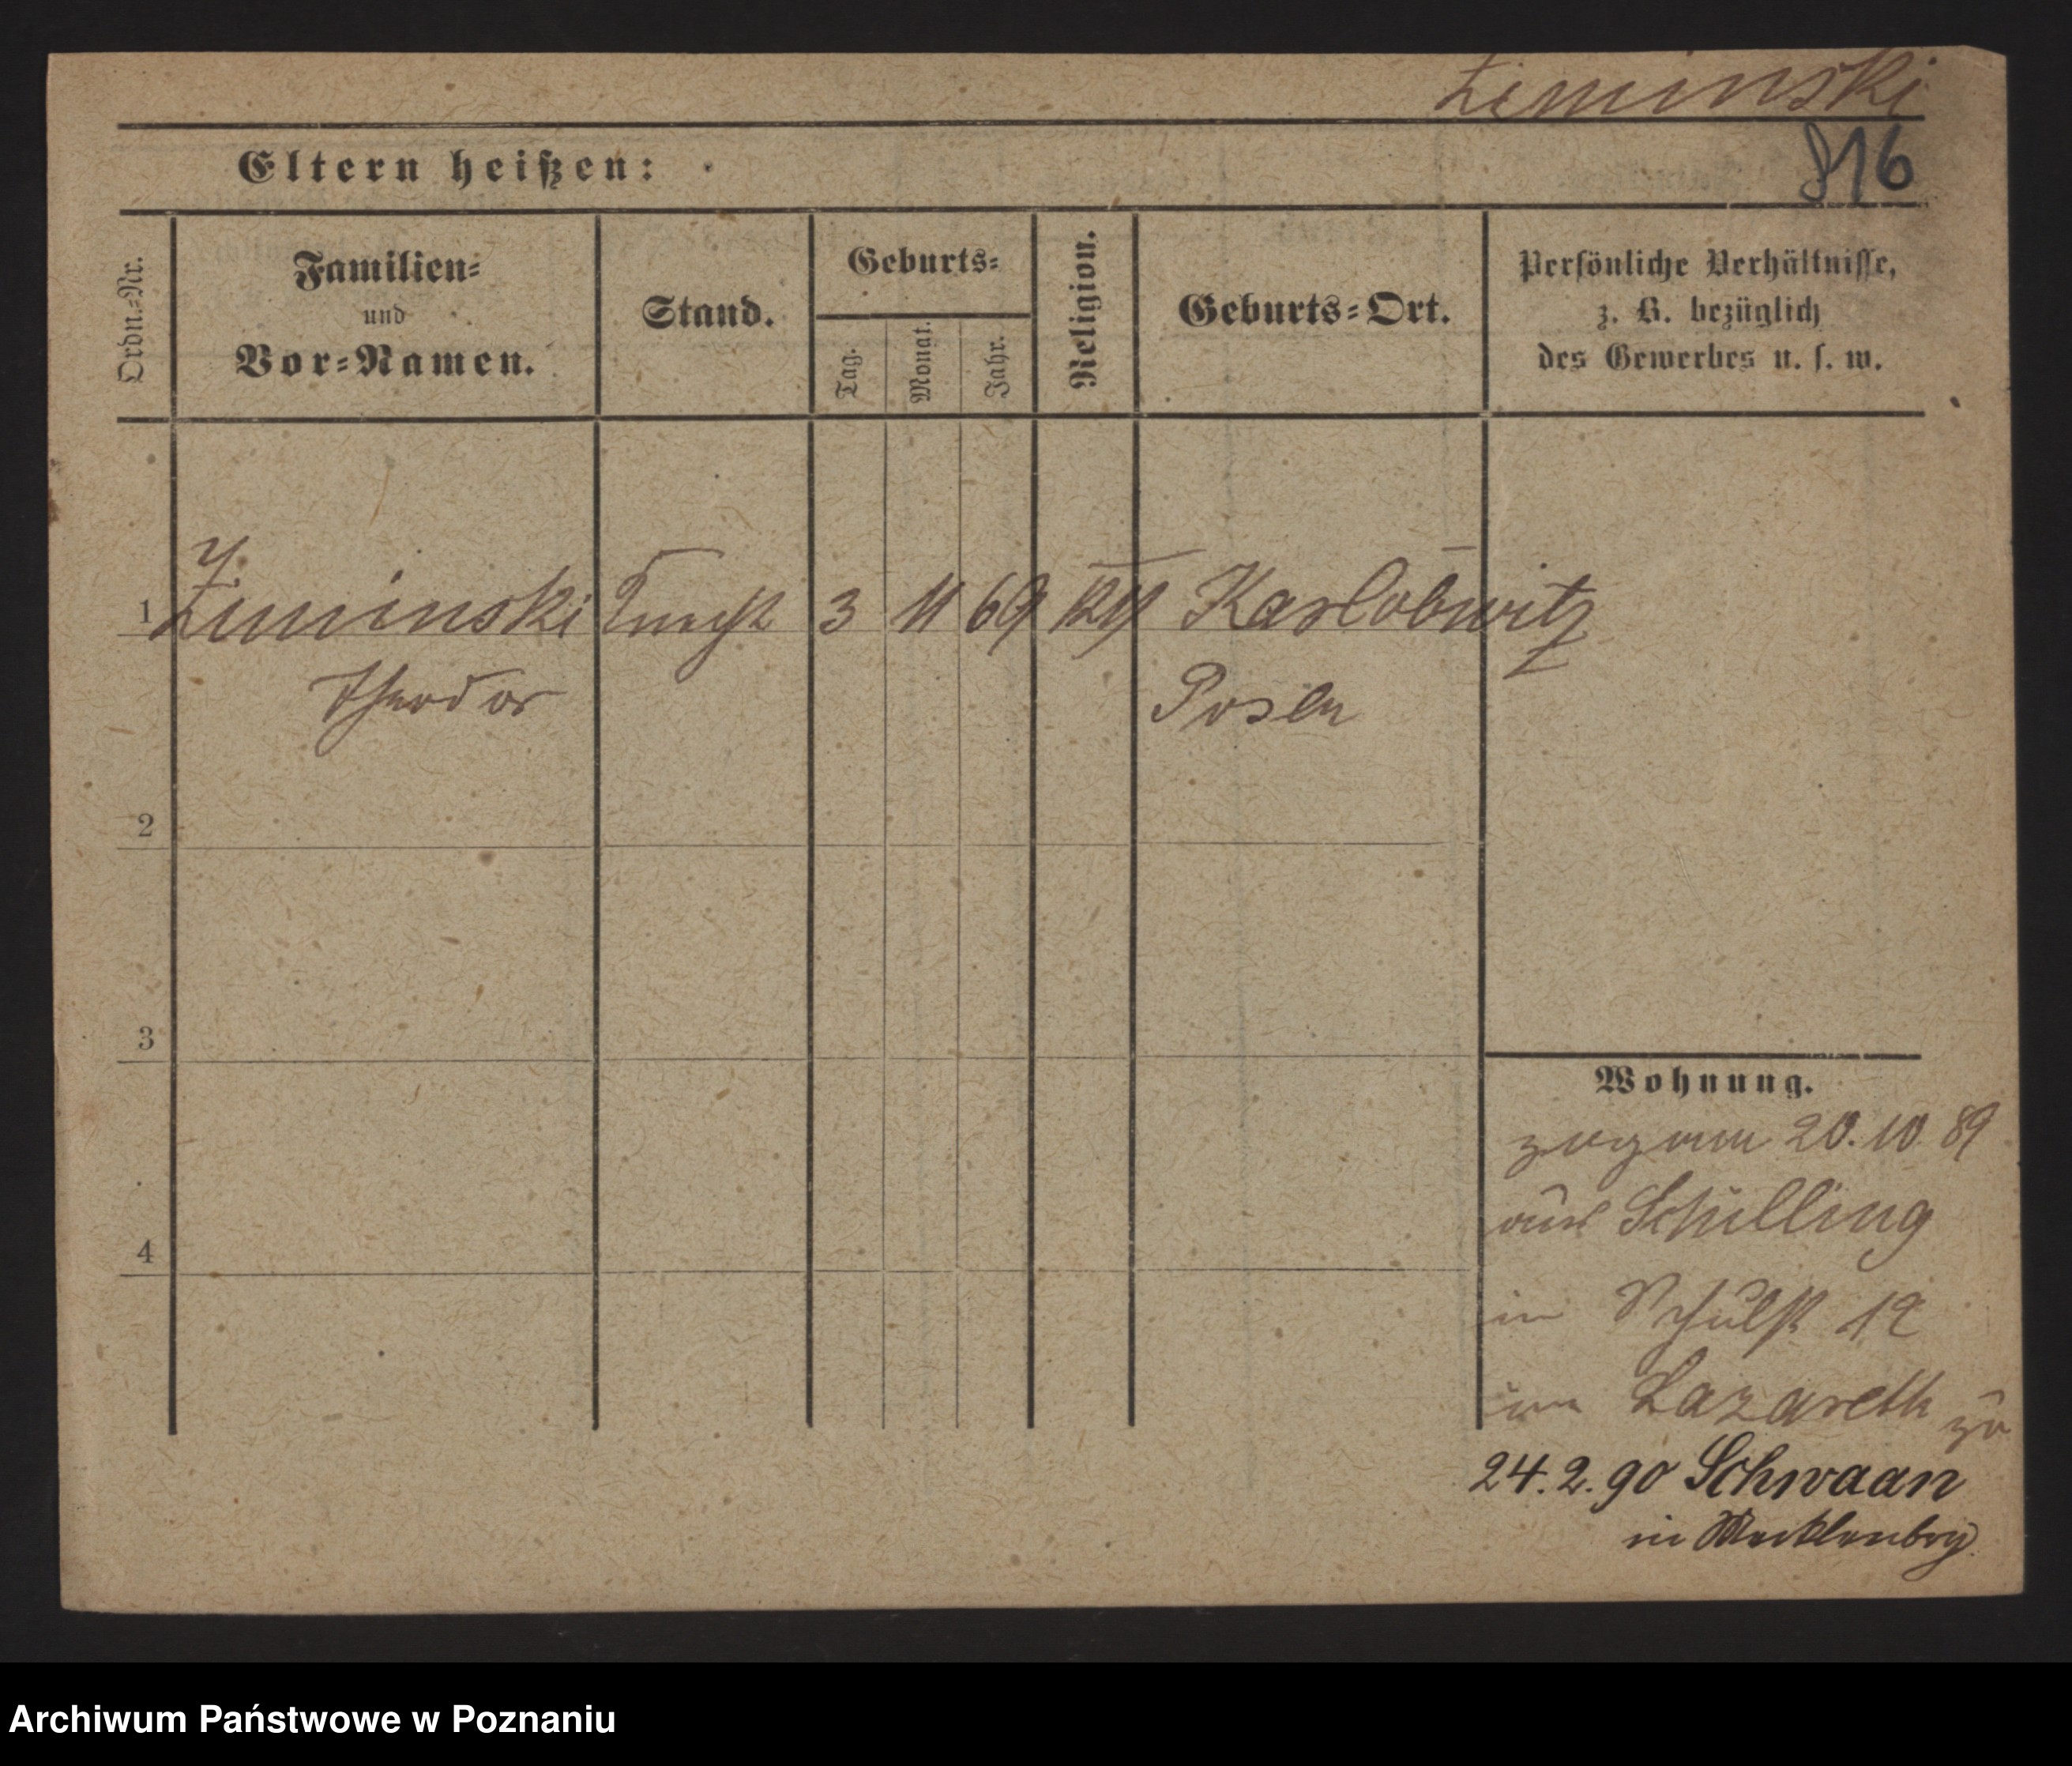 Ziminski
816
Eltern heißen:
Ordn.=Nr.
Familien=
und
Vor=Namen.
Stand.
Geburts=
Tag.
Monat.
Jahr.
Religion.
Geburts=Ort.
Persönliche Verhältnisse,
z. B. bezüglich
des Gewerbes u. s. w.
1 Ziminski Knecht 3 11 69 Karlobwitz
Theodor Posen
2
3
4
Wohnung.
zog am 20. 10. 89
aus Schilling
in Schulst 12
im Lazareth zu
24. 2. 90 Schwaan
in Mecklenbrg.
Archiwum Państwowe w Poznaniu